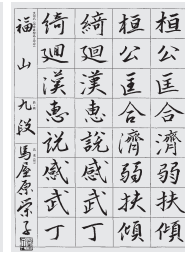 桓公匡合濟弱扶傾
桓公匡合濟弱扶傾
綺迴漢惠說感武丁
綺迴漢惠說感武丁
福山 九段 馬屋原栄子